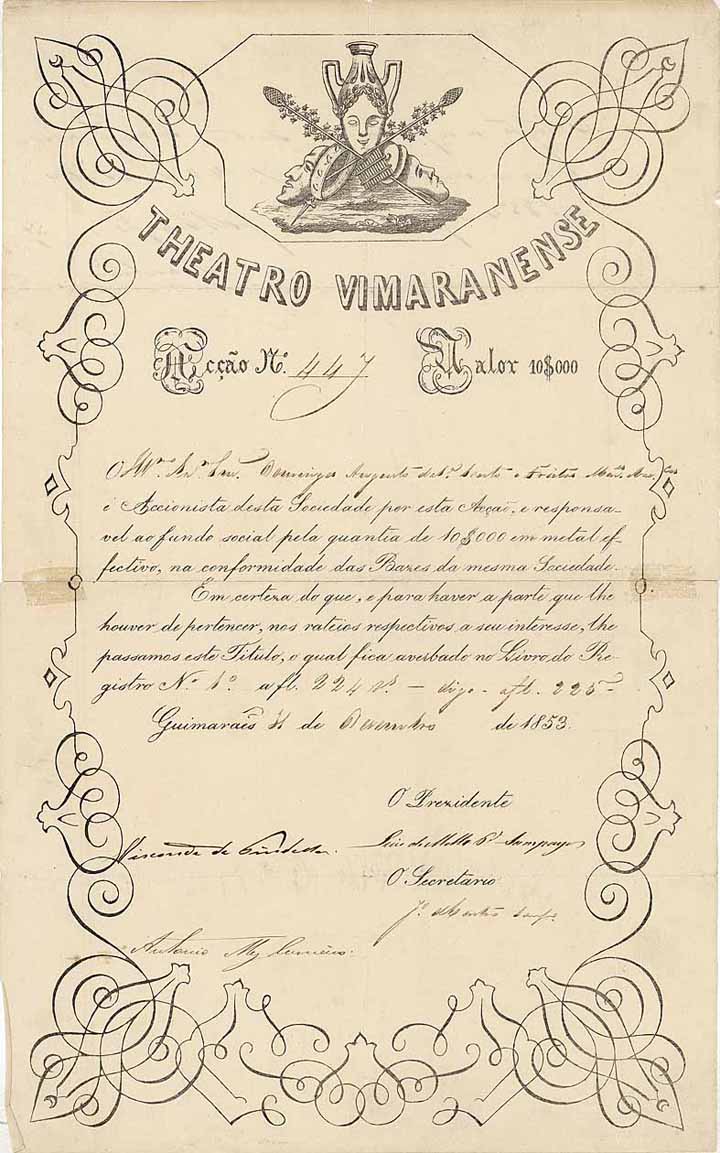 THEATRO VIMARANENSE
Acção Nº. 447 Valor 10$000
O Illmo. Domingos Augusto e Freitas
é Accionista desta Sociedade por esta Acção, e responsa-
vel ao fundo social pela quantia de 10$000 em metal ef-
fectivo, na conformidade das Bazes da mesma Sociedade.
Em certeza do que, e para haver a parte que lhe
houver de pertencer, nos rateios respectivos a seu interesse, lhe
passamos este Titulo, o qual fica averbado no Livro do Re-
gistro Nº 1º a fl. 224 vº – digo – afl. 225 –
Guimarães 31 de Dezembro de 1853.
O Prezidente
Visconde de Luis de Mello Sampayo
O Secretario
Antonio